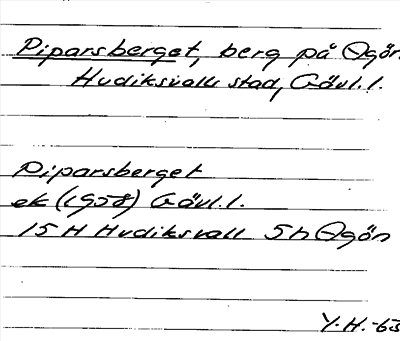 Piparsberget, berg på Agön
Hudiksvalls stad, Gävl.l.
Piparsberget
ek (1958) Gävl.l.
15 H Hudiksvall 5h Agön
Y.H. -63